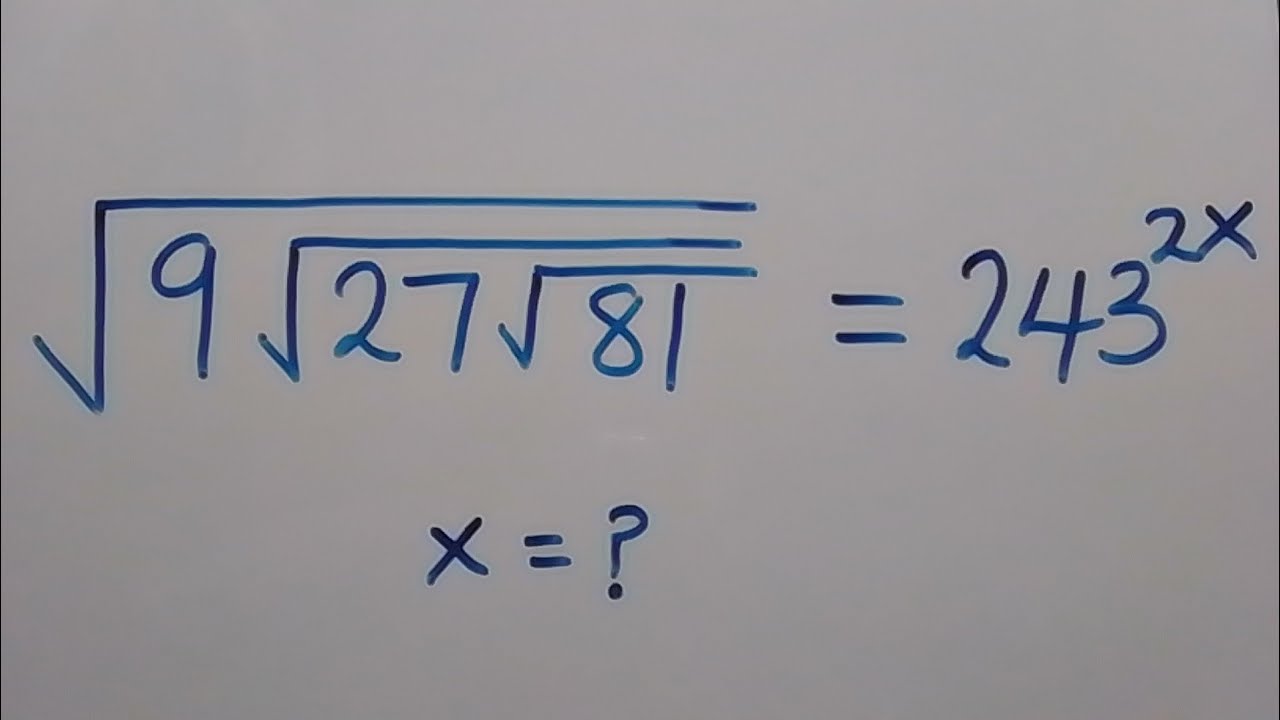 √9√27√81 = 243^2x
x = ?